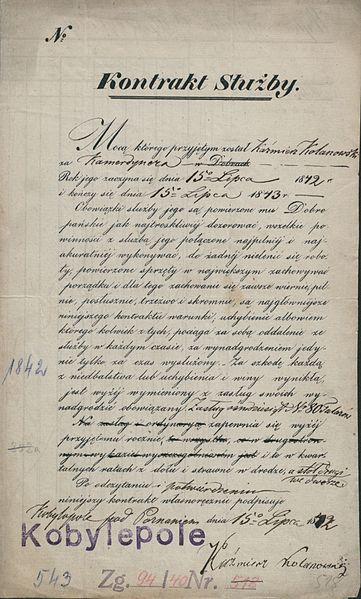 №
Kontrakt Służby.
Mocą którego przyjętym został Kaźmierz Kolanowski
za Kamerdynera w Dobrach
Rok jego zaczyna się dnia 15º Lipca 1842 r
i kończy się dnia 15º Lipca 1843 r.
Obowiązki służby jego są, powierzone mu Dobro
pańskie jak najtroskliwiéj dozorować, wszelkie po-
winności z służbą jego połączone najpilniéj i naj-
akuratniéj wykonywać, do żadnéj nielenić się robo-
ty, powierzone sprzęty w największym zachowywać
porządku i dla tego zachowanie się zawsze wierne, pil-
ne, posłuszne, trzeźwo i skromne, są najgłówniejsze
niniejszego kontraktu warunki, uchybienie albowiem
którego kolwiek z tych, pociąga za sobą oddalenie ze
służby w każdym czasie, za wynadgrodzeniem jedy-
nie tylko za czas wysłużony. Za szkodę każdą
z niedbalstwa lub uchybienia i winy wynikłą,
jest wyżéj wymieniony z zasług swoich wy-
nadgrodzić obowiązany Zasług
Na zasług i ordynaryą zapewnia się wyżéj
przyjętemu rocznie,
jak i to w kwar-
talnych ratach z dołu i strawne w drodze, a stół
we dworze
Po odczytaniu i potwierdzeniu
niniejszy kontrakt własnoręcznie podpisuje
Kobylepole pod Poznaniem dnia 15º Lipca 1842
Kaźmierz Kolanowski
1842
Kobylepole
543 Zg. 94/40 Nr. 518